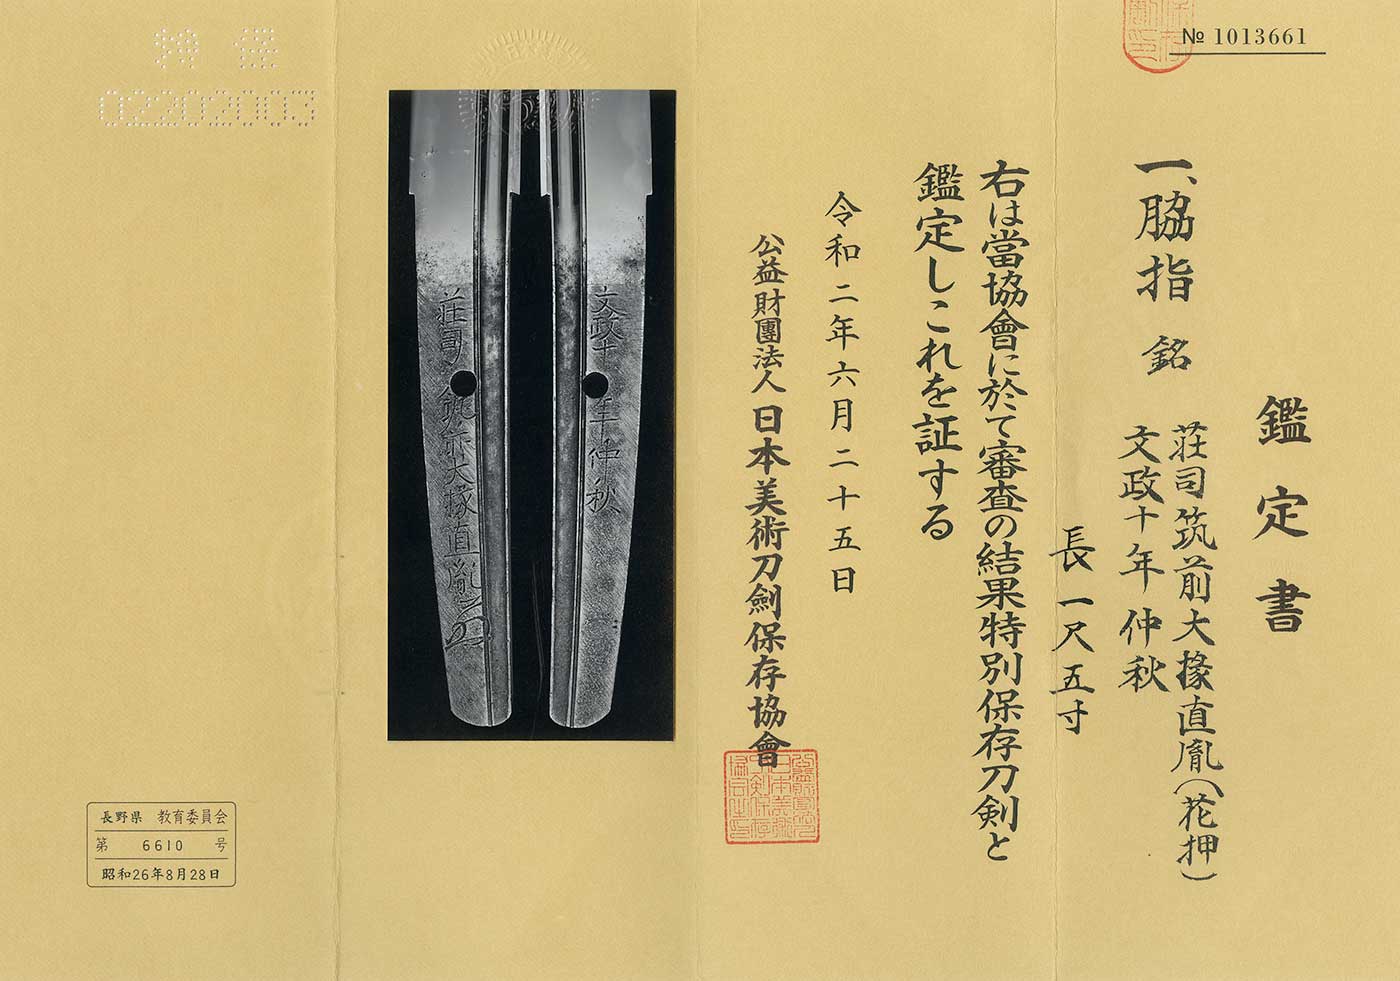 № 1013661
鑑定書
一、脇指 銘 荘司筑前大掾直胤(花押)
文政十年仲秋
長一尺五寸
右は當協會に於て審査の結果特別保存刀剣と
鑑定しこれを証する
令和二年六月二十五日
公益財團法人日本美術刀劍保存協會
文政十年仲秋
荘司筑前大掾直胤
特保
02202003
長野県 教育委員会
第 6610 号
昭和26年8月28日